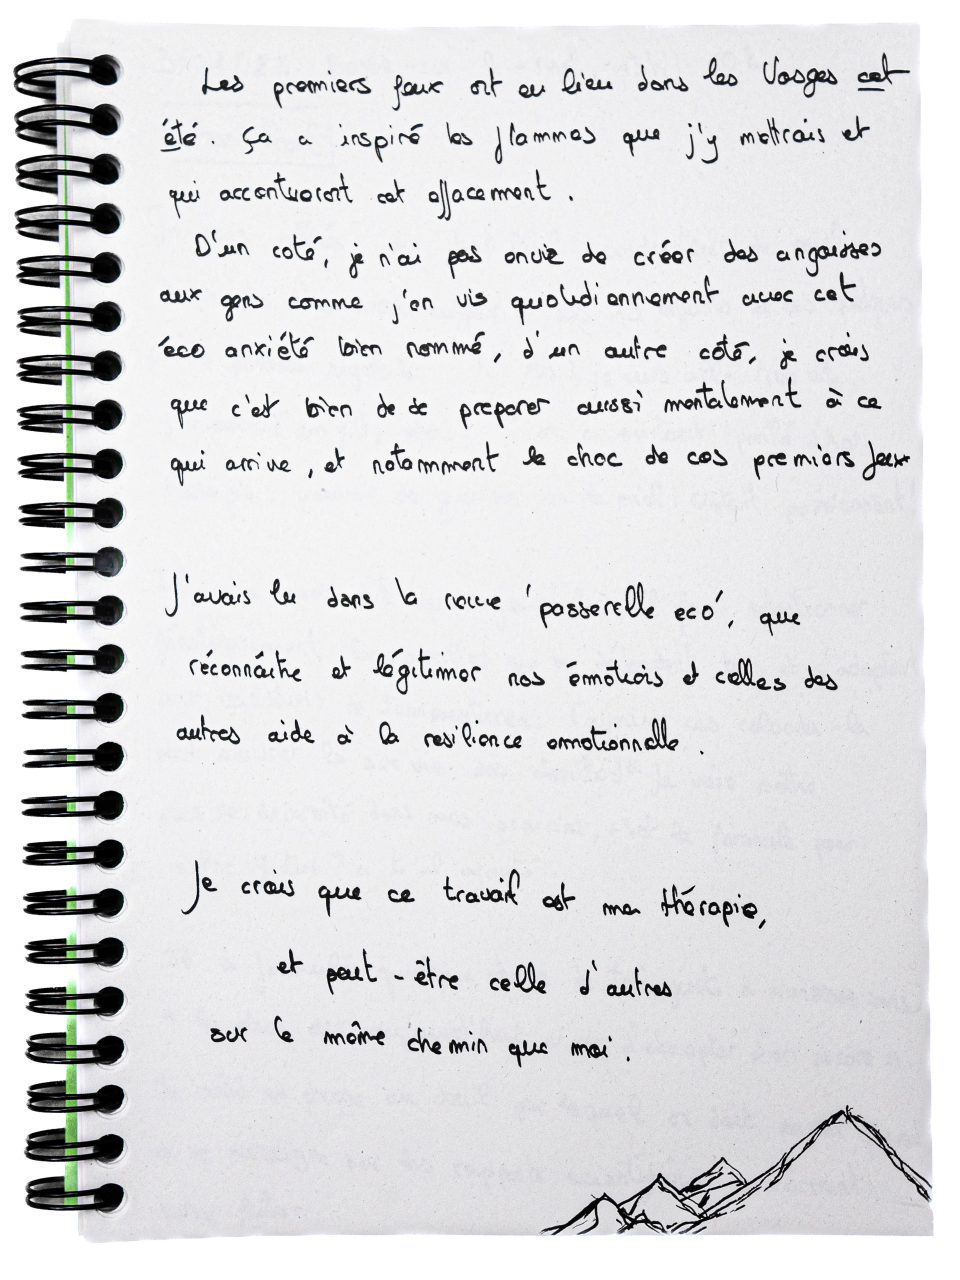 Les premiers feux ont eu lieu dans les Vosges cet
été. Ça a inspiré les flammes que j'y mettrais et
qui accentueront cet effacement.
D'un coté, je n'ai pas envie de créer des angoisses
aux gens comme j'en vis quotidiennement avec cet
éco anxiété bien nommé, d'un autre côté, je crois
que c'est bien de se preparer aussi mentalement à ce
qui arrive, et notamment le choc de ces premiers feux
J'avais lu dans la revue 'passerelle eco', que
réconnaitre et légitimer nos émotions et celles des
autres aide à la resilience emotionnelle.
Je crois que ce travail est ma thérapie,
et peut-être celle d'autres
sur le même chemin que moi.